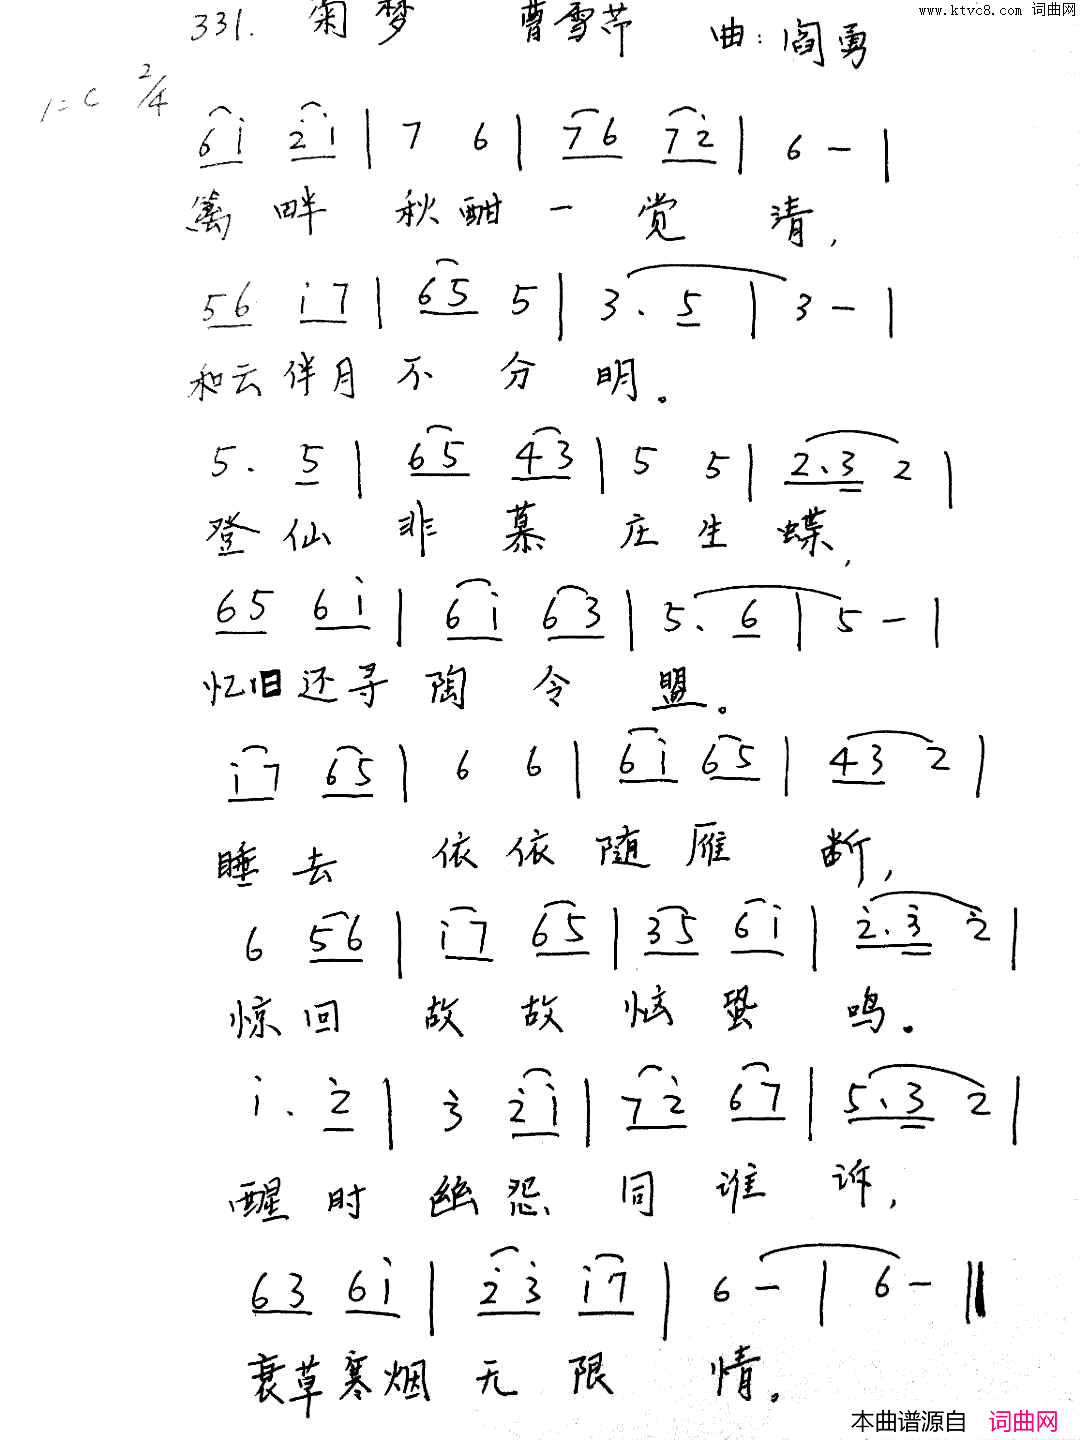 www.ktvc8.com 词曲网
331. 菊梦 曹雪芹 曲:阎勇
1=C 2/4
6i 2i | 7 6 | 76 72 | 6 – |
篱畔秋酣一觉清,
56 i7 | 65 5 | 3. 5 | 3 – |
和云伴月不分明。
5. 5 | 65 43 | 5 5 | 2.3 2 |
登仙非慕庄生蝶,
65 6i | 6i 63 | 5. 6 | 5 – |
忆旧还寻陶令盟。
i7 65 | 6 6 | 6i 65 | 43 2 |
睡去依依随雁断,
6 56 | i7 65 | 35 6i | 2.3 2 |
惊回故故恼蛩鸣。
i. 2 | 3 2i | 72 67 | 5.3 2 |
醒时幽怨同谁诉,
63 6i | 23 i7 | 6 – | 6 – ‖
衰草寒烟无限情。
本曲谱源自 词曲网